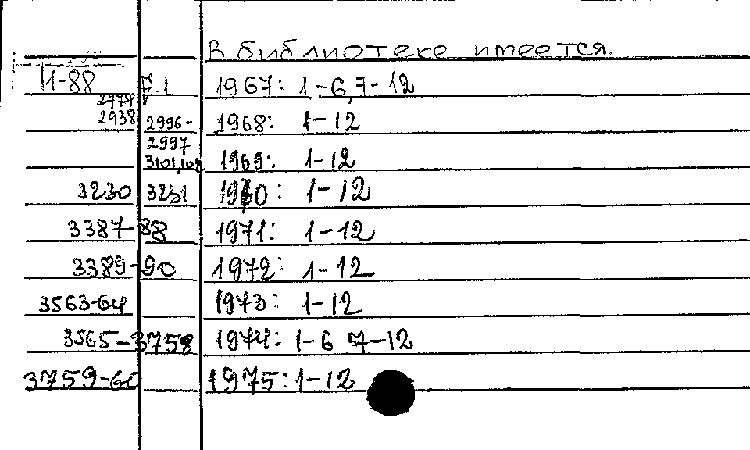 В библиотеке имеется.
П-88 1967: 1-6, 7-12
2938 2996- 1968: 1-12
2997
1969: 1-12
3230 3231 1970: 1-12
3387-88 1971: 1-12
3389-90 1972: 1-12
3563-64 1973: 1-12
3565-3758 1974: 1-6 7-12
3759-60 1975: 1-12